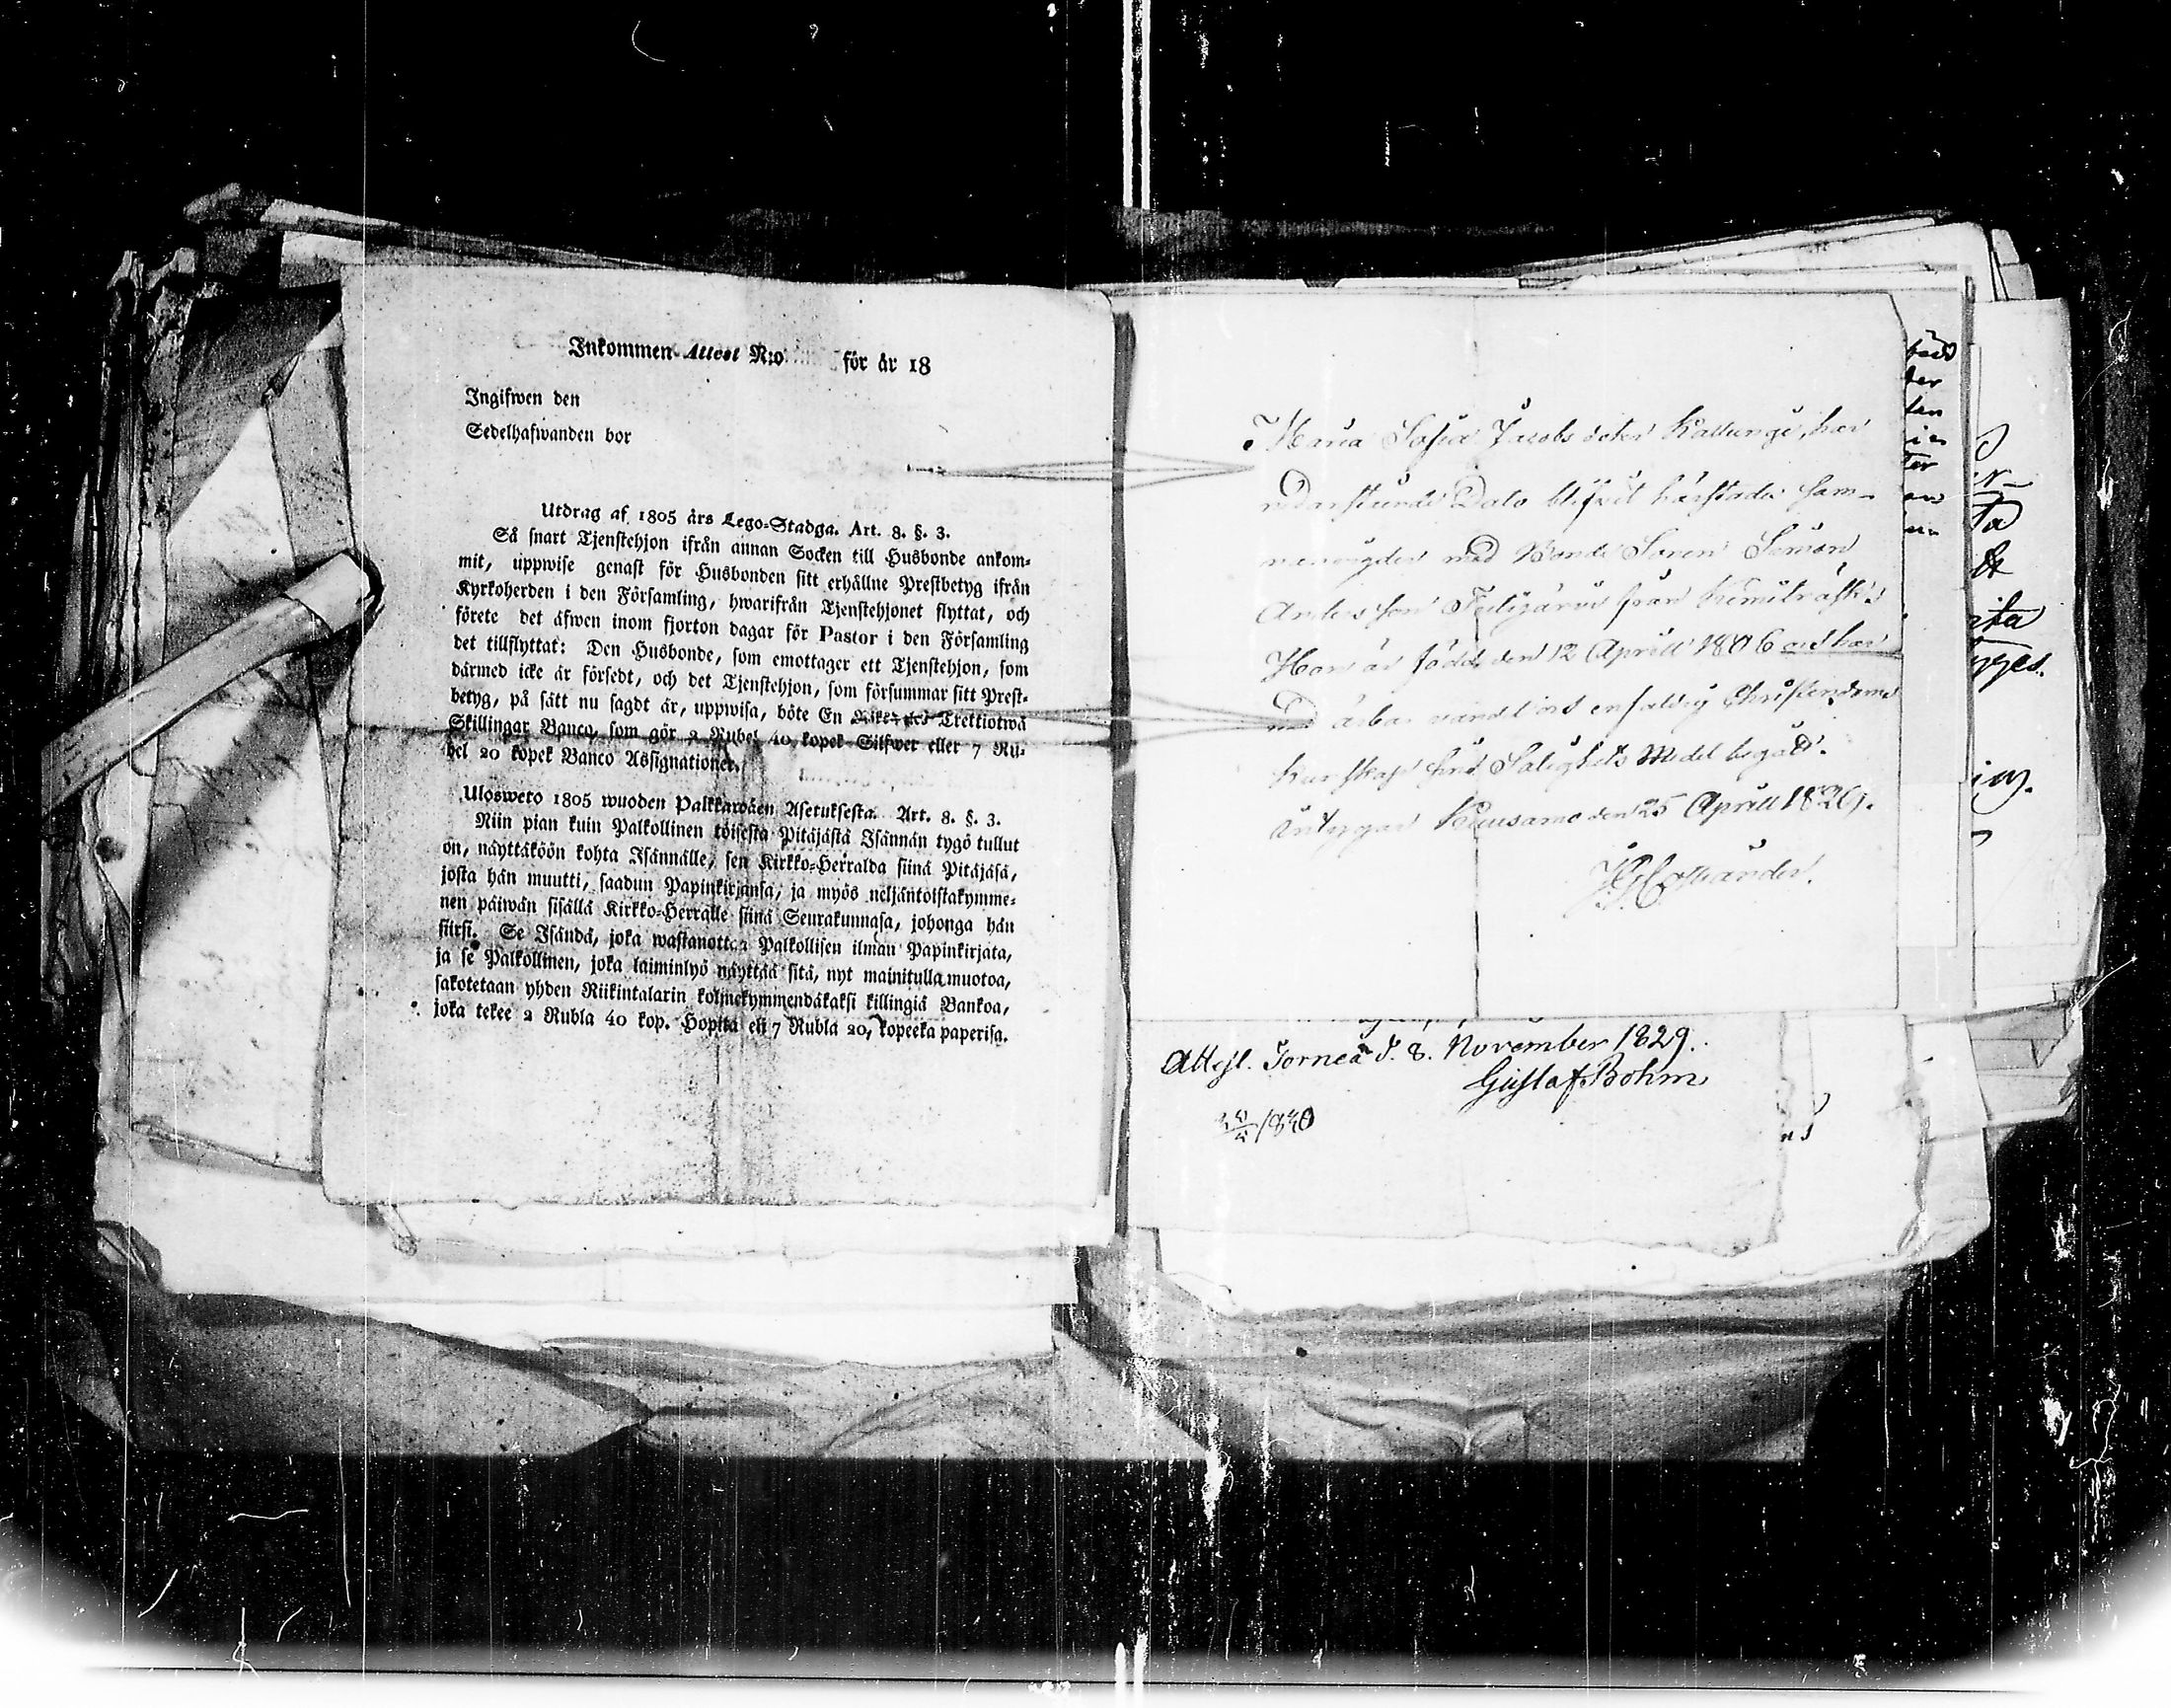 Inkommen Attest N:o för år 18
Ingifwen den
Sedelhafwanden bor
Utdrag af 1805 års Lego-Stadga. Art. 8. §. 3.
Så snart Tjenstehjon ifrån annan Socken till Husbonde ankom-
mit, uppwise genast för Husbonden sitt erhållne Prestbetyg ifrån
Kyrkoherden i den Församling, hwarifrån Tjenstehjonet flyttat, och
förete det äfwen inom fjorton dagar för Pastor i den Församling
det tillflyttat: Den Husbonde, som emottager ett Tjenstehjon, som
därmed icke är försedt, och det Tjenstehjon, som försummar sitt Prest-
betyg, på sätt nu sagdt är, uppwisa, böte En Trettiotwå
Skillingar Banco, som gör 2 Rubel 40 kopek Silfwer eller 7 Ru-
bel 20 kopek Banco Assignationer.
Ulosweto 1805 wuoden Palkkawäen Asetuksesta. Art. 8. §. 3.
Niin pian kuin Palkollinen toisesta Pitäjästä Isännän tygö tullut
on, näyttäköön kohta Isännälle, sen Kirkko-Herralda siinä Pitäjäsä,
josta hän muutti, saadun Papinkirjansa, ja myös neljäntoistakymme-
nen päiwän sisällä Kirkko-Herralle siinä Seurakunnasa, johonga hän
siirsi. Se Isändä, joka wastanottaa Palkollisen ilman Papinkirjata,
ja se Palkollinen, joka laiminlyö näyttää sitä, nyt mainitulla muotoa,
sakotetaan yhden Riikintalarin kolmekymmendäkaksi killingiä Bankoa,
joka tekee 2 Rubla 40 kop. Hopita eli 7 Rubla 20 kopeeka paperisa.
Maria Sofia Jacobs doter Kallungi, har
Dato blifvit härstädes sam-
manvigder med Bonde Sonen Simon
Anders son från Kemiträsk:
Hon är född den 12 Aprill 1806 och har
med ärbar vandel och enfaldig Christendoms
Kunskap sins Salighets Medel begådt.
intygar Kuusamo den 25 Aprill 1829.
Attest. Torneå d. 8. November 1829.
Gustaf Bohm
/830